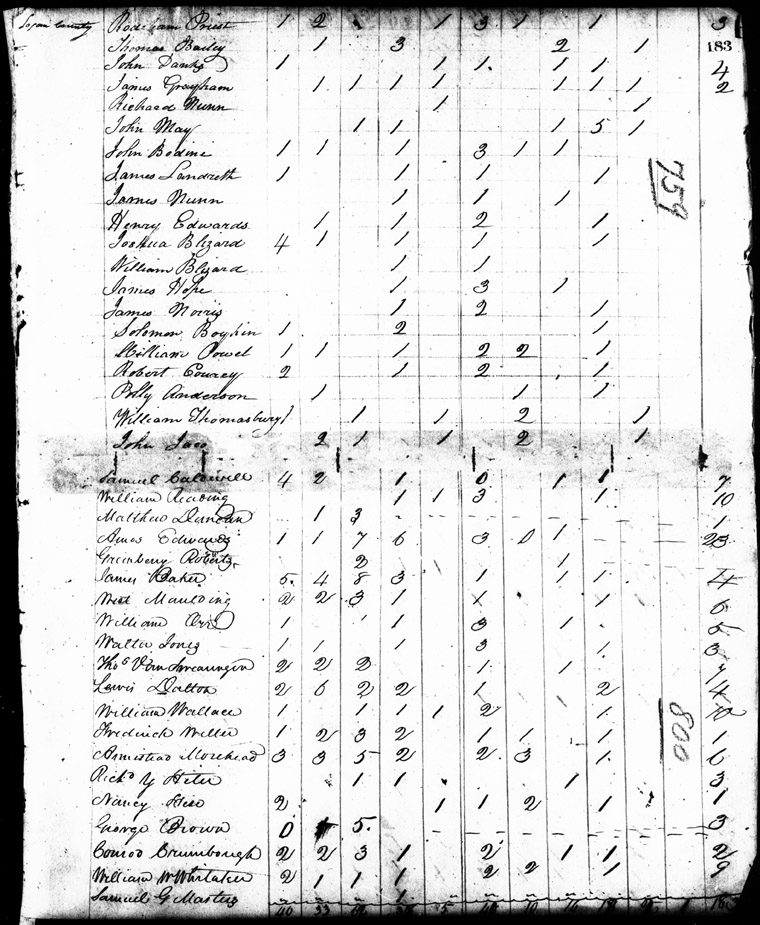 Logan County Rodeham Priest 1 2 1 3 1 1 3
Thomas Bailey 1 3 2 1 183
John Danks 1 1 1 1 1 4
James Grayham 1 1 1 1 1 1 1 2
Richard Nunn 1 1
John May 1 1 1 5 1
John Bodine 1 1 1 3 1 1
James Landreth 1 1 1 1 759
James Nunn 1 1 1
Henry Edwards 1 1 2 1
Joshua Blizard 4 1 1 1 1
William Blizard 1 1
James Hope 1 3 1
James Norris 1 2 1
Solomon Boykin 1 2 1
William Powel 1 1 1 2 2 1
Robert Cowrey 2 1 2 1
Polly Anderson 1 1 1
William Thomasbury 1 1 1 2 1
John Jaco 2 1 1 2 1
Samuel Caldwell 4 2 1 0 1 1 7
William Reading 1 1 3 1 10
Matthew Duncan 1 3 1
Amos Edwards 1 1 7 6 3 0 1 23
Greenberry Roberts 2 1
James Baker 5 4 8 3 1 1 1 4
West Maulding 2 2 3 1 1 1 6
William Orr 1 1 1 3 1 5
Walter Jones 1 1 1 3 1 3
Thos 2 2 2 1 1 7
Lewis Dalton 2 6 2 2 1 2 14
William Wallace 1 1 1 1 2 1 800
Fredrick Willer 1 2 3 2 1 1 1 1
Armestead Morehead 3 3 5 2 2 3 1 6
Richd Y 1 1 1 3
Nancy 2 1 1 2 1 1
George Brown 0 1 5 3
Conrod Crumbough 2 2 3 1 2 1 1 2
William W Whitaker 2 1 1 1 2 2 1 9
Samuel G Masters 1